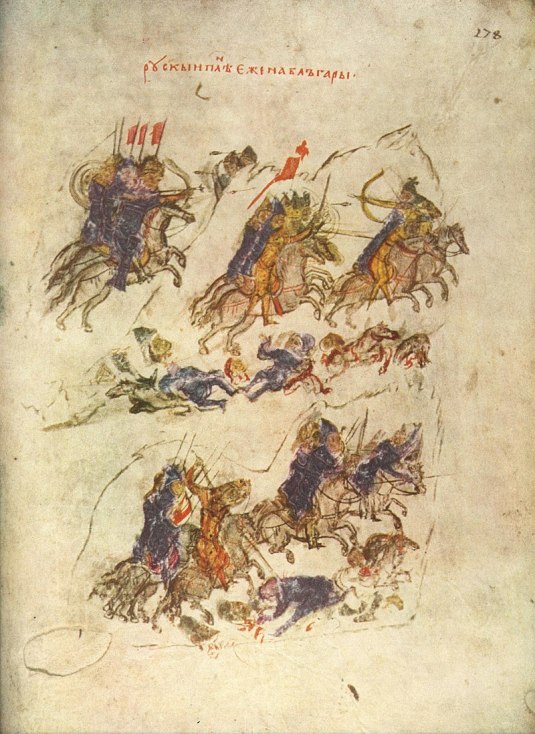 278
рꙋскыи пл҃нъ еже на блъгары·